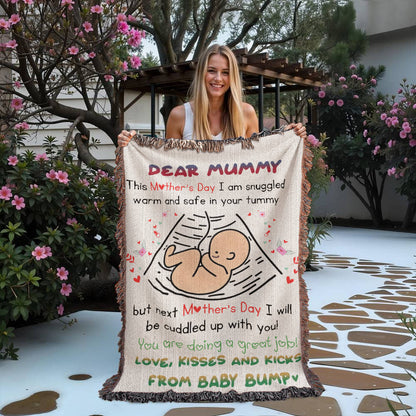 DEAR MUMMY
This Mother's Day I am snuggled
warm and safe in your tummy
but next Mother's Day I will
be cuddled up with you!
You are doing a great job!
LOVE, KISSES AND KICKS
FROM BABY BUMP